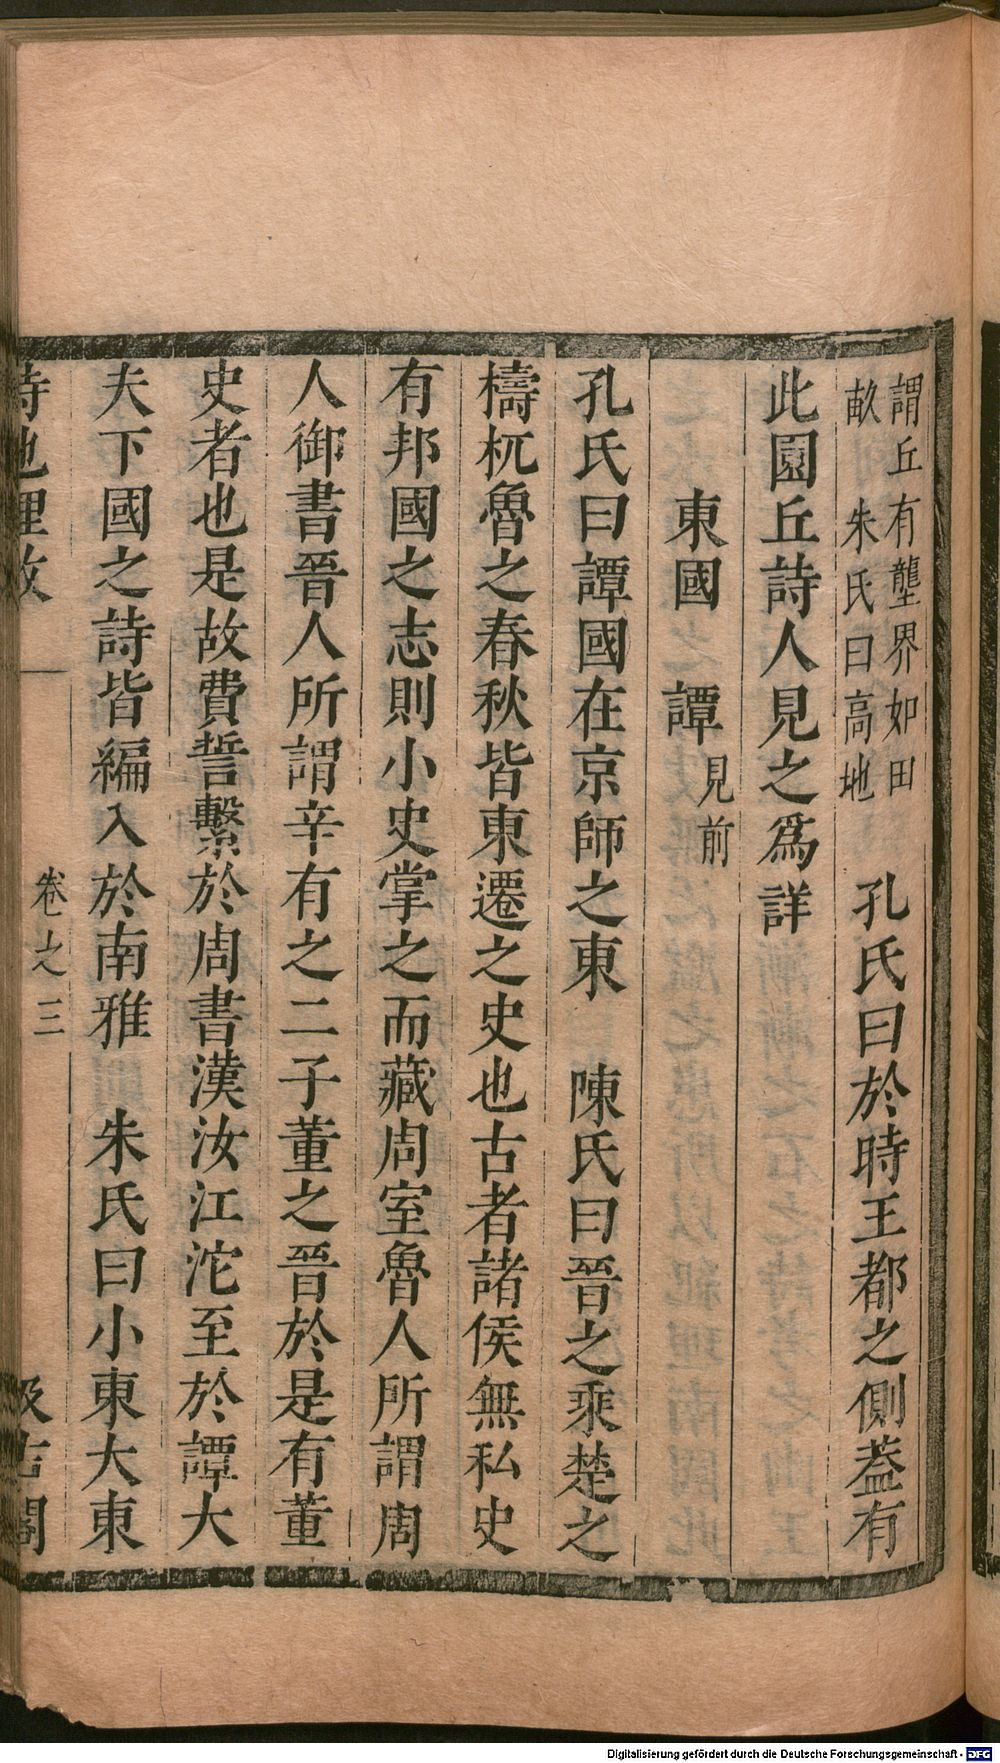 謂丘有壟界如田
畝　朱氏曰高地　孔氏曰於時王都之側葢有
此園丘詩人見之爲詳
東國　譚見前
孔氏曰譚國在京師之東　陳氏曰晉之乘楚之
檮杌魯之春秋皆東遷之史也古者諸侯無私史
有邦國之志則小史掌之而藏周室魯人所謂周
人御書晉人所謂辛有之二子董之晉於是有董
史者也是故費誓繫於周書漢汝江沱至於譚大
夫下國之詩皆編入於南雅　朱氏曰小東大東
詩地理攷　卷之三　汲古閣
Digitalisierung gefördert durch die Deutsche Forschungsgemeinschaft - DFG